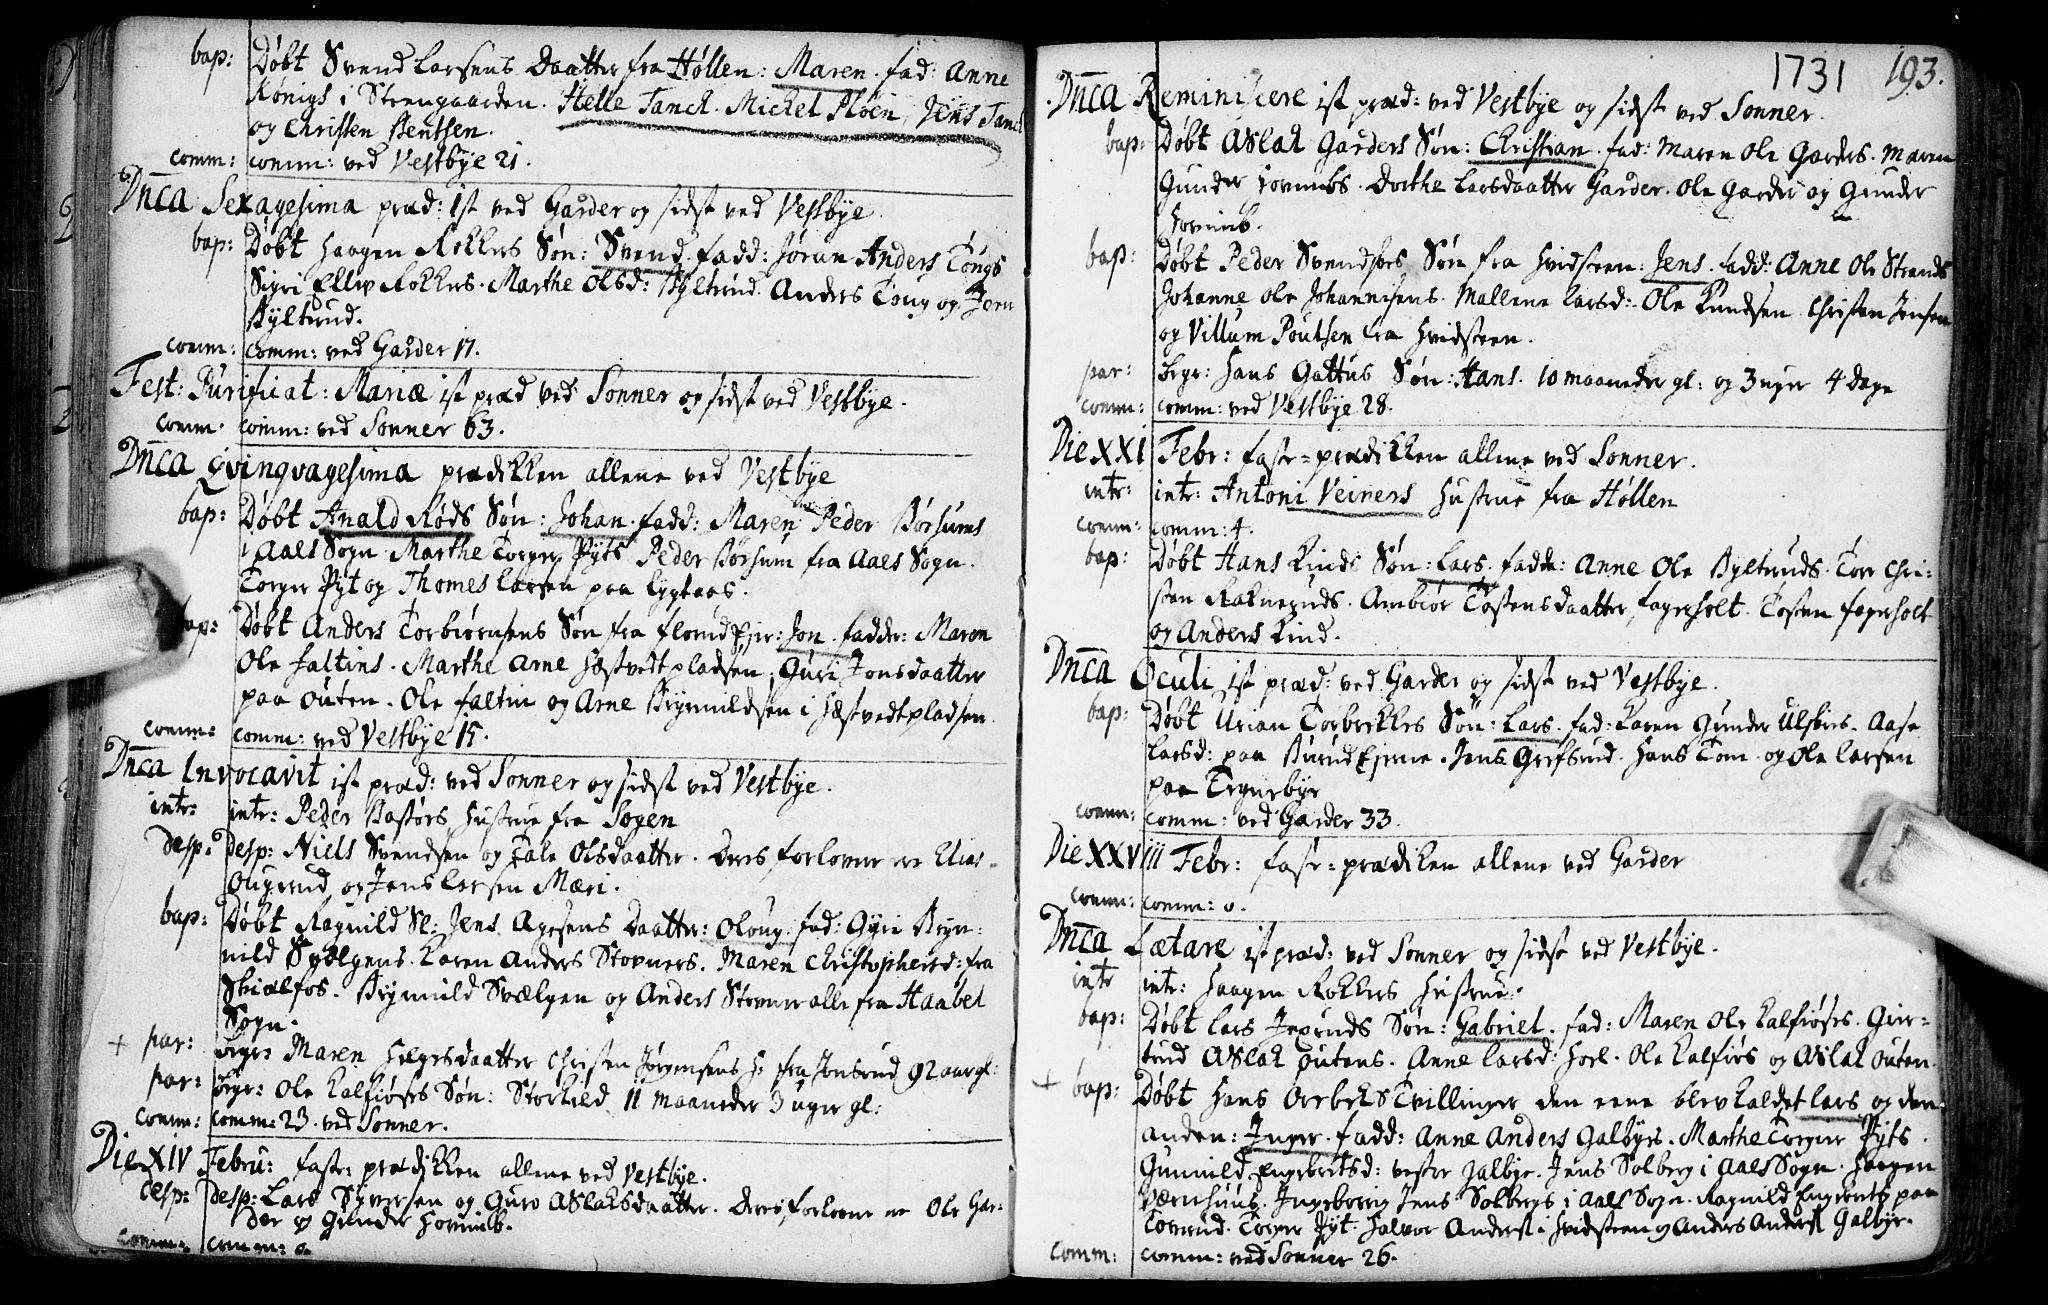 bap: Døbt Svend Larsens Daatter fra Høllen: Maren. fad: Anne
Königs i Strengaarden. Helle Tanck. Michel Pløen, Jens Tanck
og Christen Bentsen.
comm: comm: ved Vestbye 21.
Dnca Sexagesima præd: ist ved Garder og sidst ved Vestbye.
bap: Døbt Haagen Rokkers Søn: Svend. fadd: Jørun Anders Tougs
Sigri Ellis Rokkers. Marthe Olsd: Byltrud. Anders Toug og Jern
Byltrud.
comm: comm: ved Garder 17.
Fest: Purificat: Mariæ ist præd ved Sonner og sidst ved Vestbye.
comm. comm: ved Sonner 63.
Dnca Qvinqvagesima prædikken allene ved Vestbye
bap: Døbt Anald Røds Søn: Johan. fadd: Maren Peder Børsums
i Aaels Sogn. Marthe Torger Pyts Peder Børsum fra Aaels Sogn.
Torger Pyt og Thomes Larsen paa Lygtaas.
bap: Døbt Anders Torbiørnsens Søn fra Florudejer: Jon. faddr: Maren
Ole Faltins. Marthe Arne Hæstvedtpladsen, Guri Jonsdaatter
paa Outen. Ole Faltin og Arne Brynnildsen i Hæstvedtpladsen.
comm: comm: ved Vestbye 15.
Dnca Invocavit ist præd: ved Sonner og sidst ved Vestbye.
intr: intr: Peder Bastøes Hustrue fra Sogen
desp: desp: Niels Svendsen og Tale Olsdaatter. Deres forlovere ere Elias
Ougerud og Jens Larsen Mæri.
bap: Døbt Ragnild Sl: Jens Agesens Daatter: Oloug. fad: Gyri Bryn-
nild Svælgens. Karen Anders Stovners. Maren Christophersd: fra
Skialfos. Brynnild Svælgen og Anders Stovner alle fra Haabel
Sogn.
+ par: begr: Maren Helgesdaatter Christen Jørgensens H: fra Jonsrud 92 aar gl:
par: begr: Ole Kalfiøses Søn: Storkild 11 maaneder 3 uger gl:
comm: comm: 23. ved Sonner.
Die XIV Febru: faste prædikken allene ved Vestbye.
desp: desp: Lars Syversen og Guro Aslaksdaatter. Deres forlovere ere Ole Gar-
der og Gunder Hovimb.
comm: comm: 0.
1731 193.
Dnca Reminiscere ist præd: ved Vestbye og sidst ved Sonner.
bap: Døbt Aslak Garders Søn: Christian. fad: Maren Ole Garders. Maren
Gunder Hovimbs. Dorthe Larsdaatter Garder. Ole Garder og Gunder
Hovimb.
bap: Døbt Peder Svendsøns Søn fra Hvidsteen: Jens. fadd: Anne Ole Strands
Johanne Ole Johannisens. Mallene Larsd: Ole Knudsen. Christen Jensen
og Villum Poulsen fra Hvidsteen.
par: begr: Hans Gattus Søn: Hans. 10 maaneder gl: og 3 uger 4 Dage
comm: comm: ved Vestbye 28.
Die XXI Febr: faste=prædikken allene ved Sonner.
intr: intr: Antoni Veiners Hustrue fra Høllen
comm: comm: 4.
bap: Døbt Hans Kinds Søn: Lars. faddr: Anne Ole Byltruds. Tore Chri-
sten Raknerids. Ambiør Tostensdaatter, Fagerholt. Tosten Fagerholt
og Anders Kind.
Dnca Oculi ist præd: ved Garder og sidst ved Vestbye.
bap: Døbt Urian Torbekkes Søn: Lars. fad: Karen Gunder Ulfsbies. Aase
Larsd: paa Burudejerne. Jens Grefsrud. Hans Tom. og Ole Larsen
paa Tegnebye
comm: comm: ved Garder 33.
Die XXVIII Febr: faste=prædiken allene ved Garder
comm: comm: 0.
Dnca Lætare ist præd: ved Sonner og sidst ved Vestbye.
intr intr: Haagen Rokkers Hustrue.
bap: Døbt Lars Jeperuds Søn: Gabriel. fad: Maren Ole Kalfiøses. Gier-
trud Aslak Outens. Anne Larsd: Horl. Ole Kalfiøs og Aslak Outen.
+ bap: Døbt Hans Orrbeks Tvillinger den eene blev kaldet Lars og den
anden: Inger. fadd: Anne Anders Galbyes. Marthe Torger Pyts.
Gunnild Engebritsd: vestre Galbye. Jens Solberg i Aaels Sogn. Haagen
Værnhuus. Ingeborrig Jens Solbergs i Aaels Sogn. Ragnild Engebrits paa
Torrud. Torger Pyt. Halvor Anders. Hvidsteen og Anders Anders Galbye.
comm: comm: ved Sonner 26.